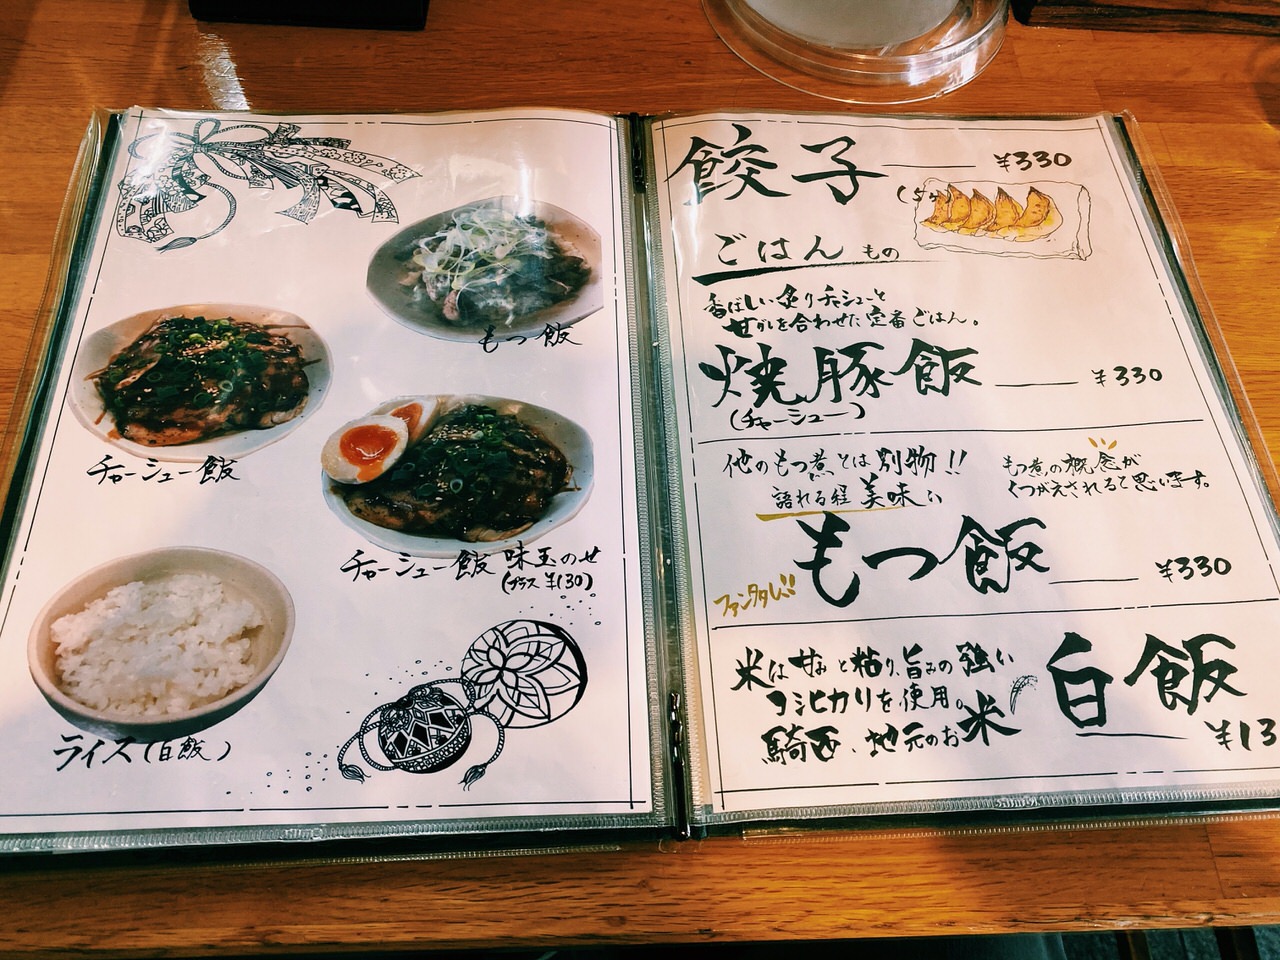 もつ飯
チャーシュー飯
チャーシュー飯 味玉のせ
(プラス ¥130)
ライス(白飯)
餃子 ¥330
(5ケ
ごはんもの
香ばしい炙りチャーシューと
甘ダレを合わせた定番ごはん。
焼豚飯 ¥330
(チャーシュー)
他のもつ煮とは別物!!
語れる程美味い
もつ煮の概念が
くつがえされると思います。
もつ飯 ¥330
ファンタジー!!
米は甘みと粘り、旨みの強い
コシヒカリを使用。
騎西、地元のお米
白飯
¥13